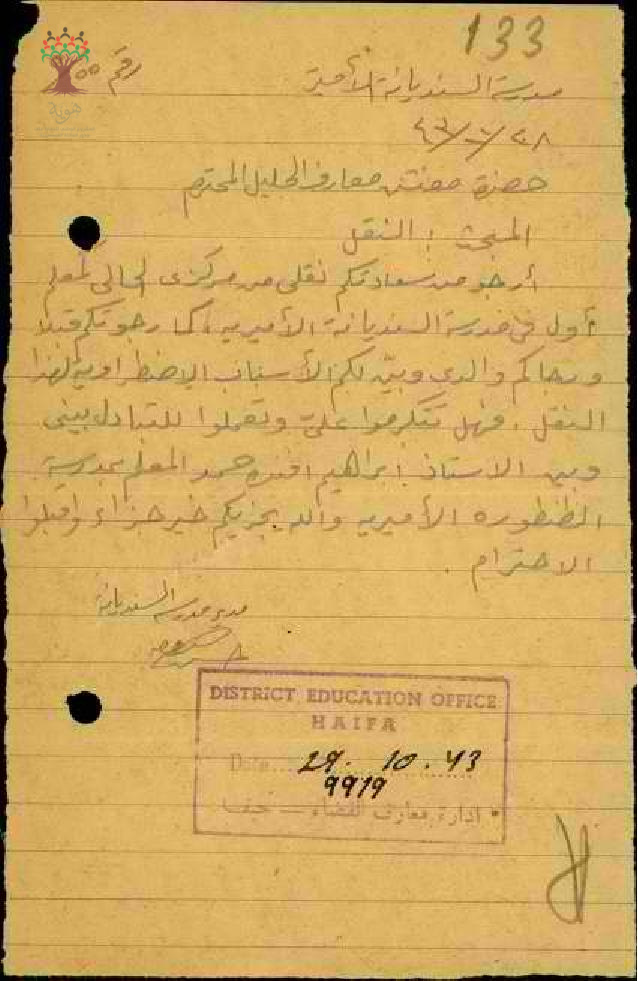 133
رقم ٥٥
مدرسة السنديانة الأميرية
٢٨/١٠/٤٣
حضرة مفتش معارف الجليل المحترم
المبحث : النقل
أرجو من سعادتكم نقلي من مركزي الحالي كمعلم
أول في مدرسة السنديانة الأميريه، كما رجوتكم قبلا
ورجاكم والدي وبيّن لكم الأسباب الإضطراريه لهذا
النقل. فهل تتكرموا عليّ وتعملوا للتبادل بيني
وبين الاستاذ ابراهيم افندي حمد المعلم بمدرسة
الطنطوره الأميريه والله يجزيكم خير جزاء واقبلوا
الاحترام .
مدير مدرسة السنديانة
DISTRICT EDUCATION OFFICE
HAIFA
Date... 29. 10. 43
9919
ادارة معارف القضاء — حيفا
هوية